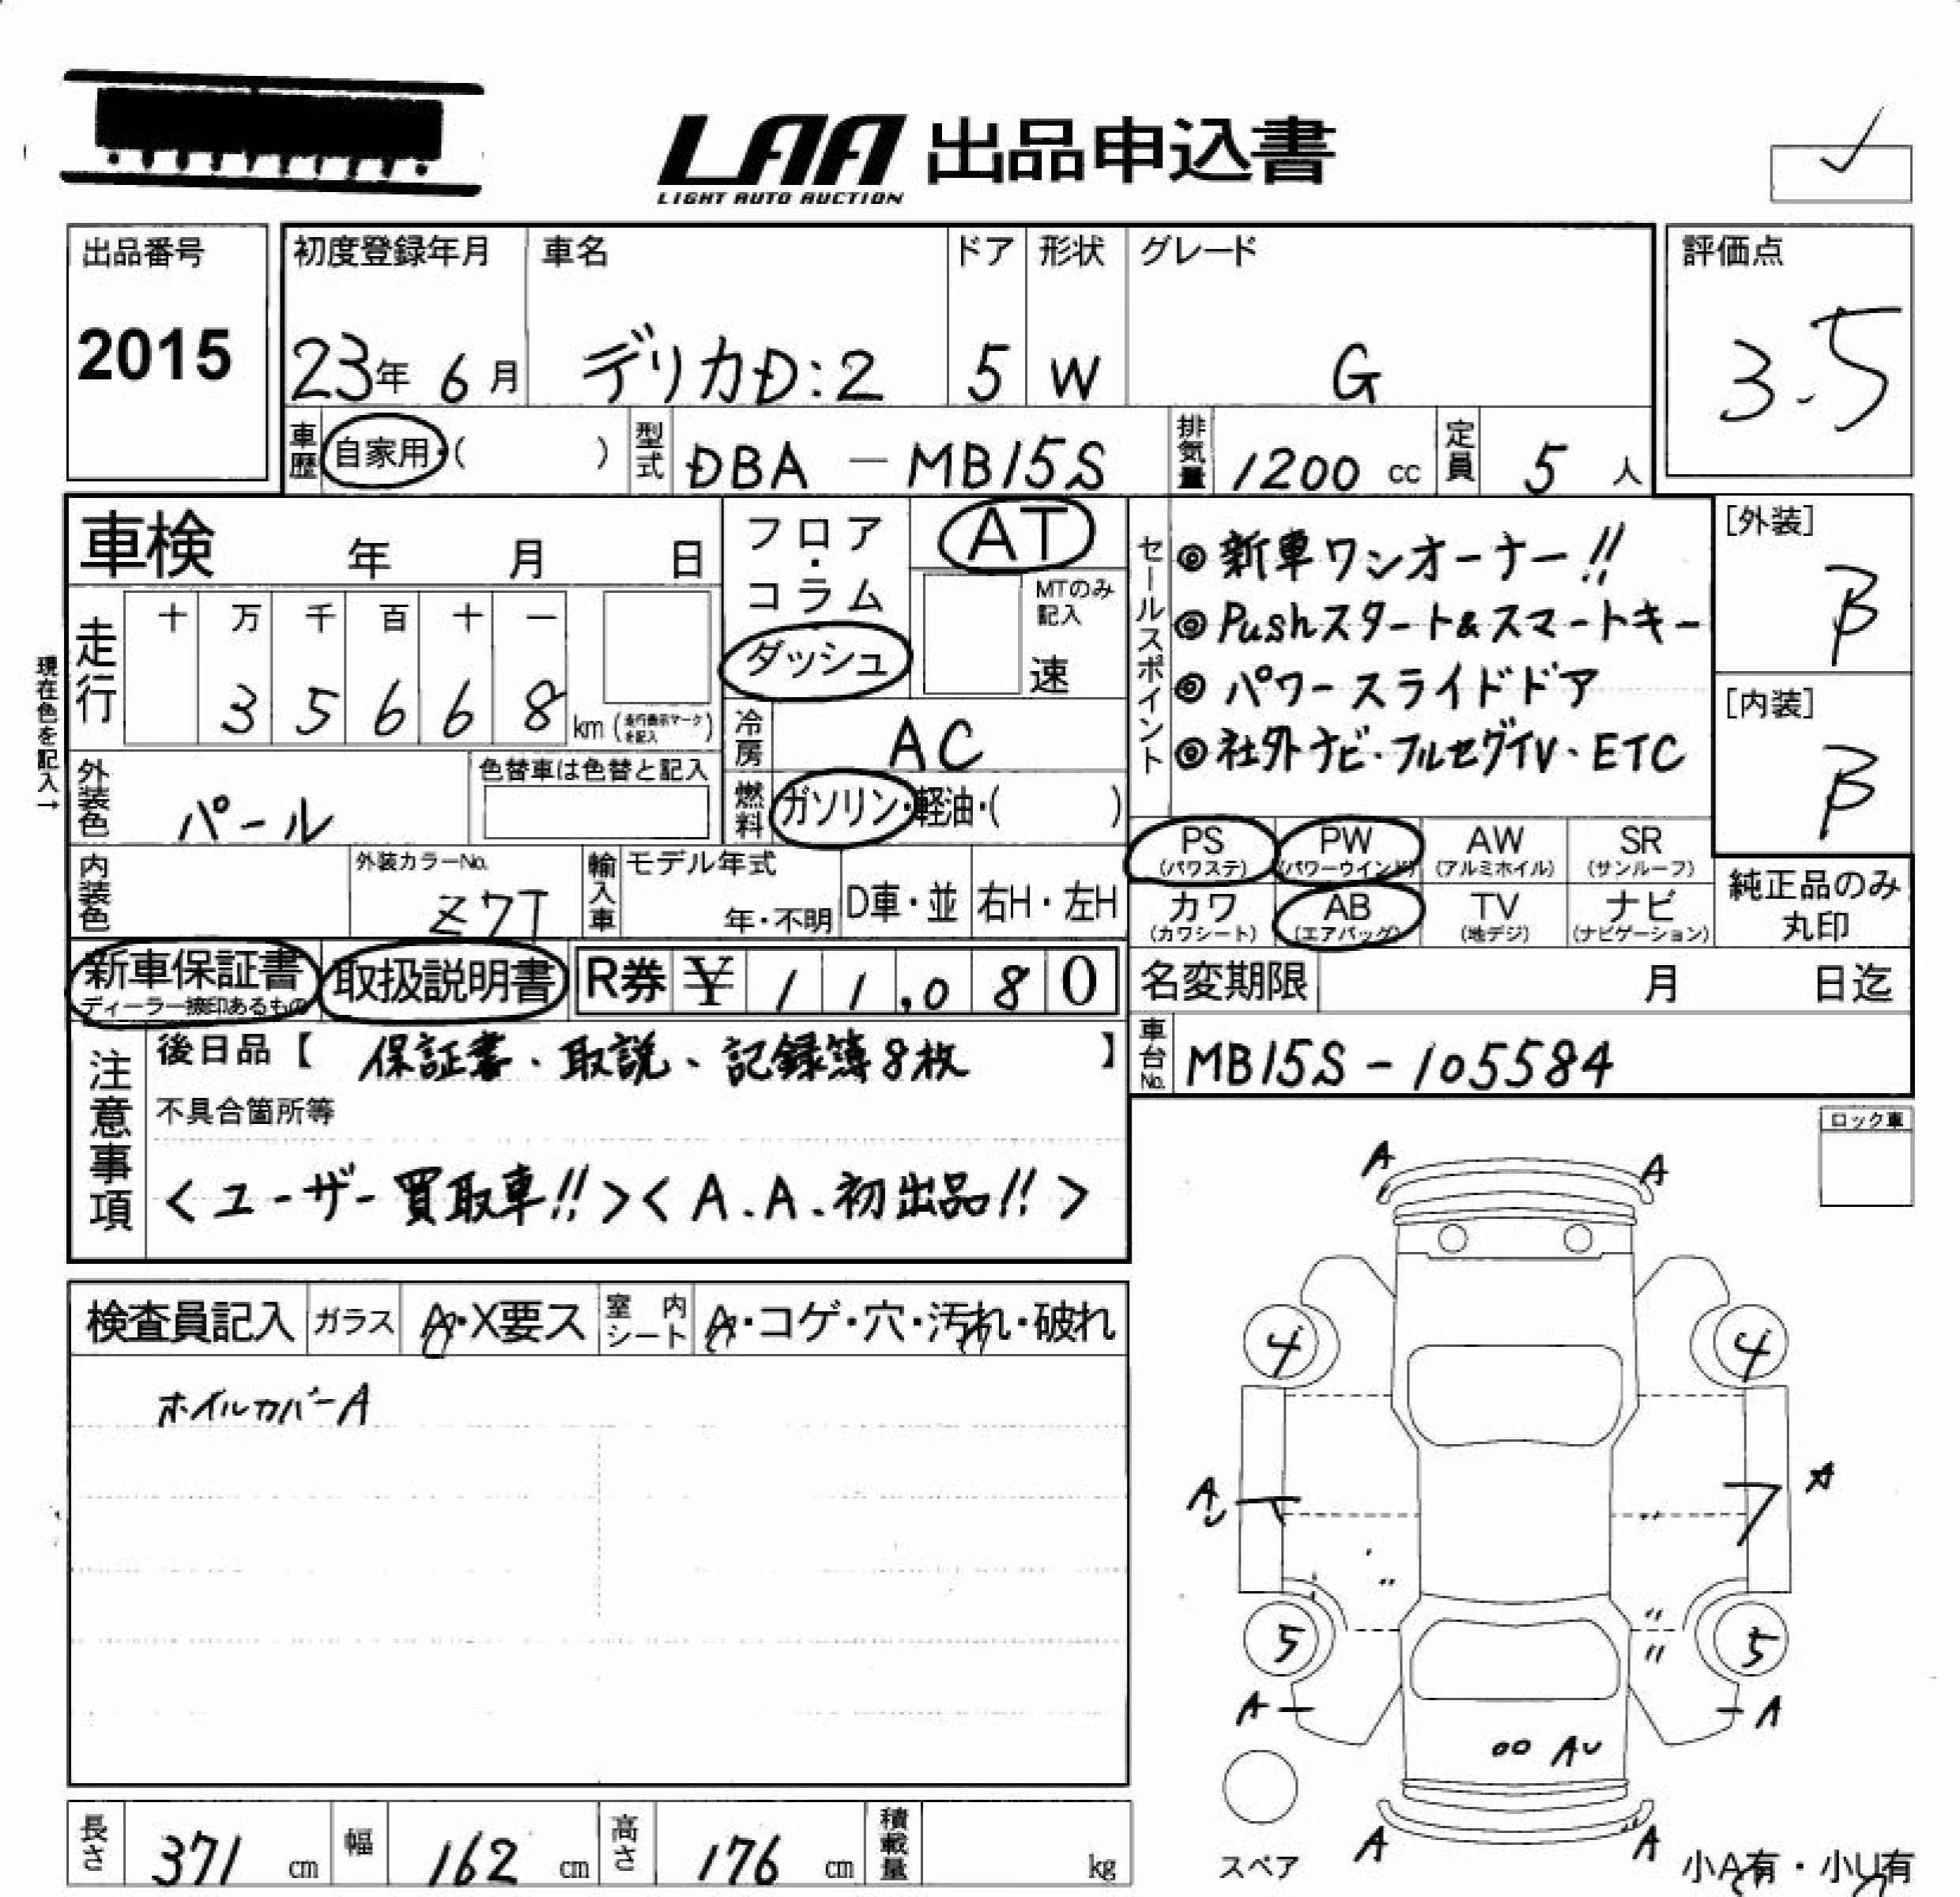 LAA 出品申込書
LIGHT AUTO AUCTION
出品番号
2015
初度登録年月 車名 ドア 形状 グレード
23年 6月 デリカD:2 5 W G
評価点
3.5
車歴 自家用・( ) 型式 DBA - MB15S 排気量 1200 cc 定員 5 人
車検 年 月 日
フロア・コラム
ダッシュ
AT
MTのみ記入
速
現在色を記入→
走行 十 万 千 百 十 一
3 5 6 6 8 km (走行表示マークを記入)
冷房 AC
外装色 パール
色替車は色替と記入
燃料 ガソリン・軽油・( )
内装色
外装カラーNo.
Z7T
輸入車 モデル年式
年・不明 D車・並 右H・左H
セールスポイント
◎新車ワンオーナー!!
◎Pushスタート&スマートキー
◎パワースライドドア
◎社外ナビ・フルセグTV・ETC
[外装]
B
[内装]
B
PS (パワステ) PW (パワーウインド) AW (アルミホイル) SR (サンルーフ)
カワ (カワシート) AB (エアバッグ) TV (地デジ) ナビ (ナビゲーション)
純正品のみ
丸印
新車保証書
ディーラー捺印あるもの
取扱説明書
R券 ¥ 11,080
名変期限 月 日迄
車台No. MB15S-105584
注意事項
後日品【 保証書、取説、記録簿8枚 】
不具合箇所等
<ユーザー買取車!!><A.A.初出品!!>
ロック車
検査員記入 ガラス A・X要ス 室内シート A・コゲ・穴・汚れ・破れ
ホイルカバーA
A A
4 4
AU A
5 5
A A
AU
A A
スペア
小A有・小U有
長さ 371 cm 幅 162 cm 高さ 176 cm 積載量 kg